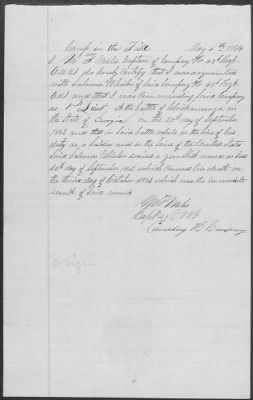 Camp in the Field May 4th 1864
I W. F. Captain of Company H 49 Regt
O.V.V.I do hereby Certify that I was acquainted
with Solomon Whisler of said Company H 49 Regt
O.V.V.I and that I was then commanding said Company
as 1st Lieut. At the battle of Chickamauga in
the State of Georgia on the 20th day of September
1863 and that in said battle while in the line of his
duty as a Soldier and in the Service of the United States
Said Solomon Whisler received a gun Shot wound on said
20th day of September 1863 which caused his death on
the third day of October 1863 which was the immediate
result of said wound
Capt 49 O.V.V.I
Commanding H Company